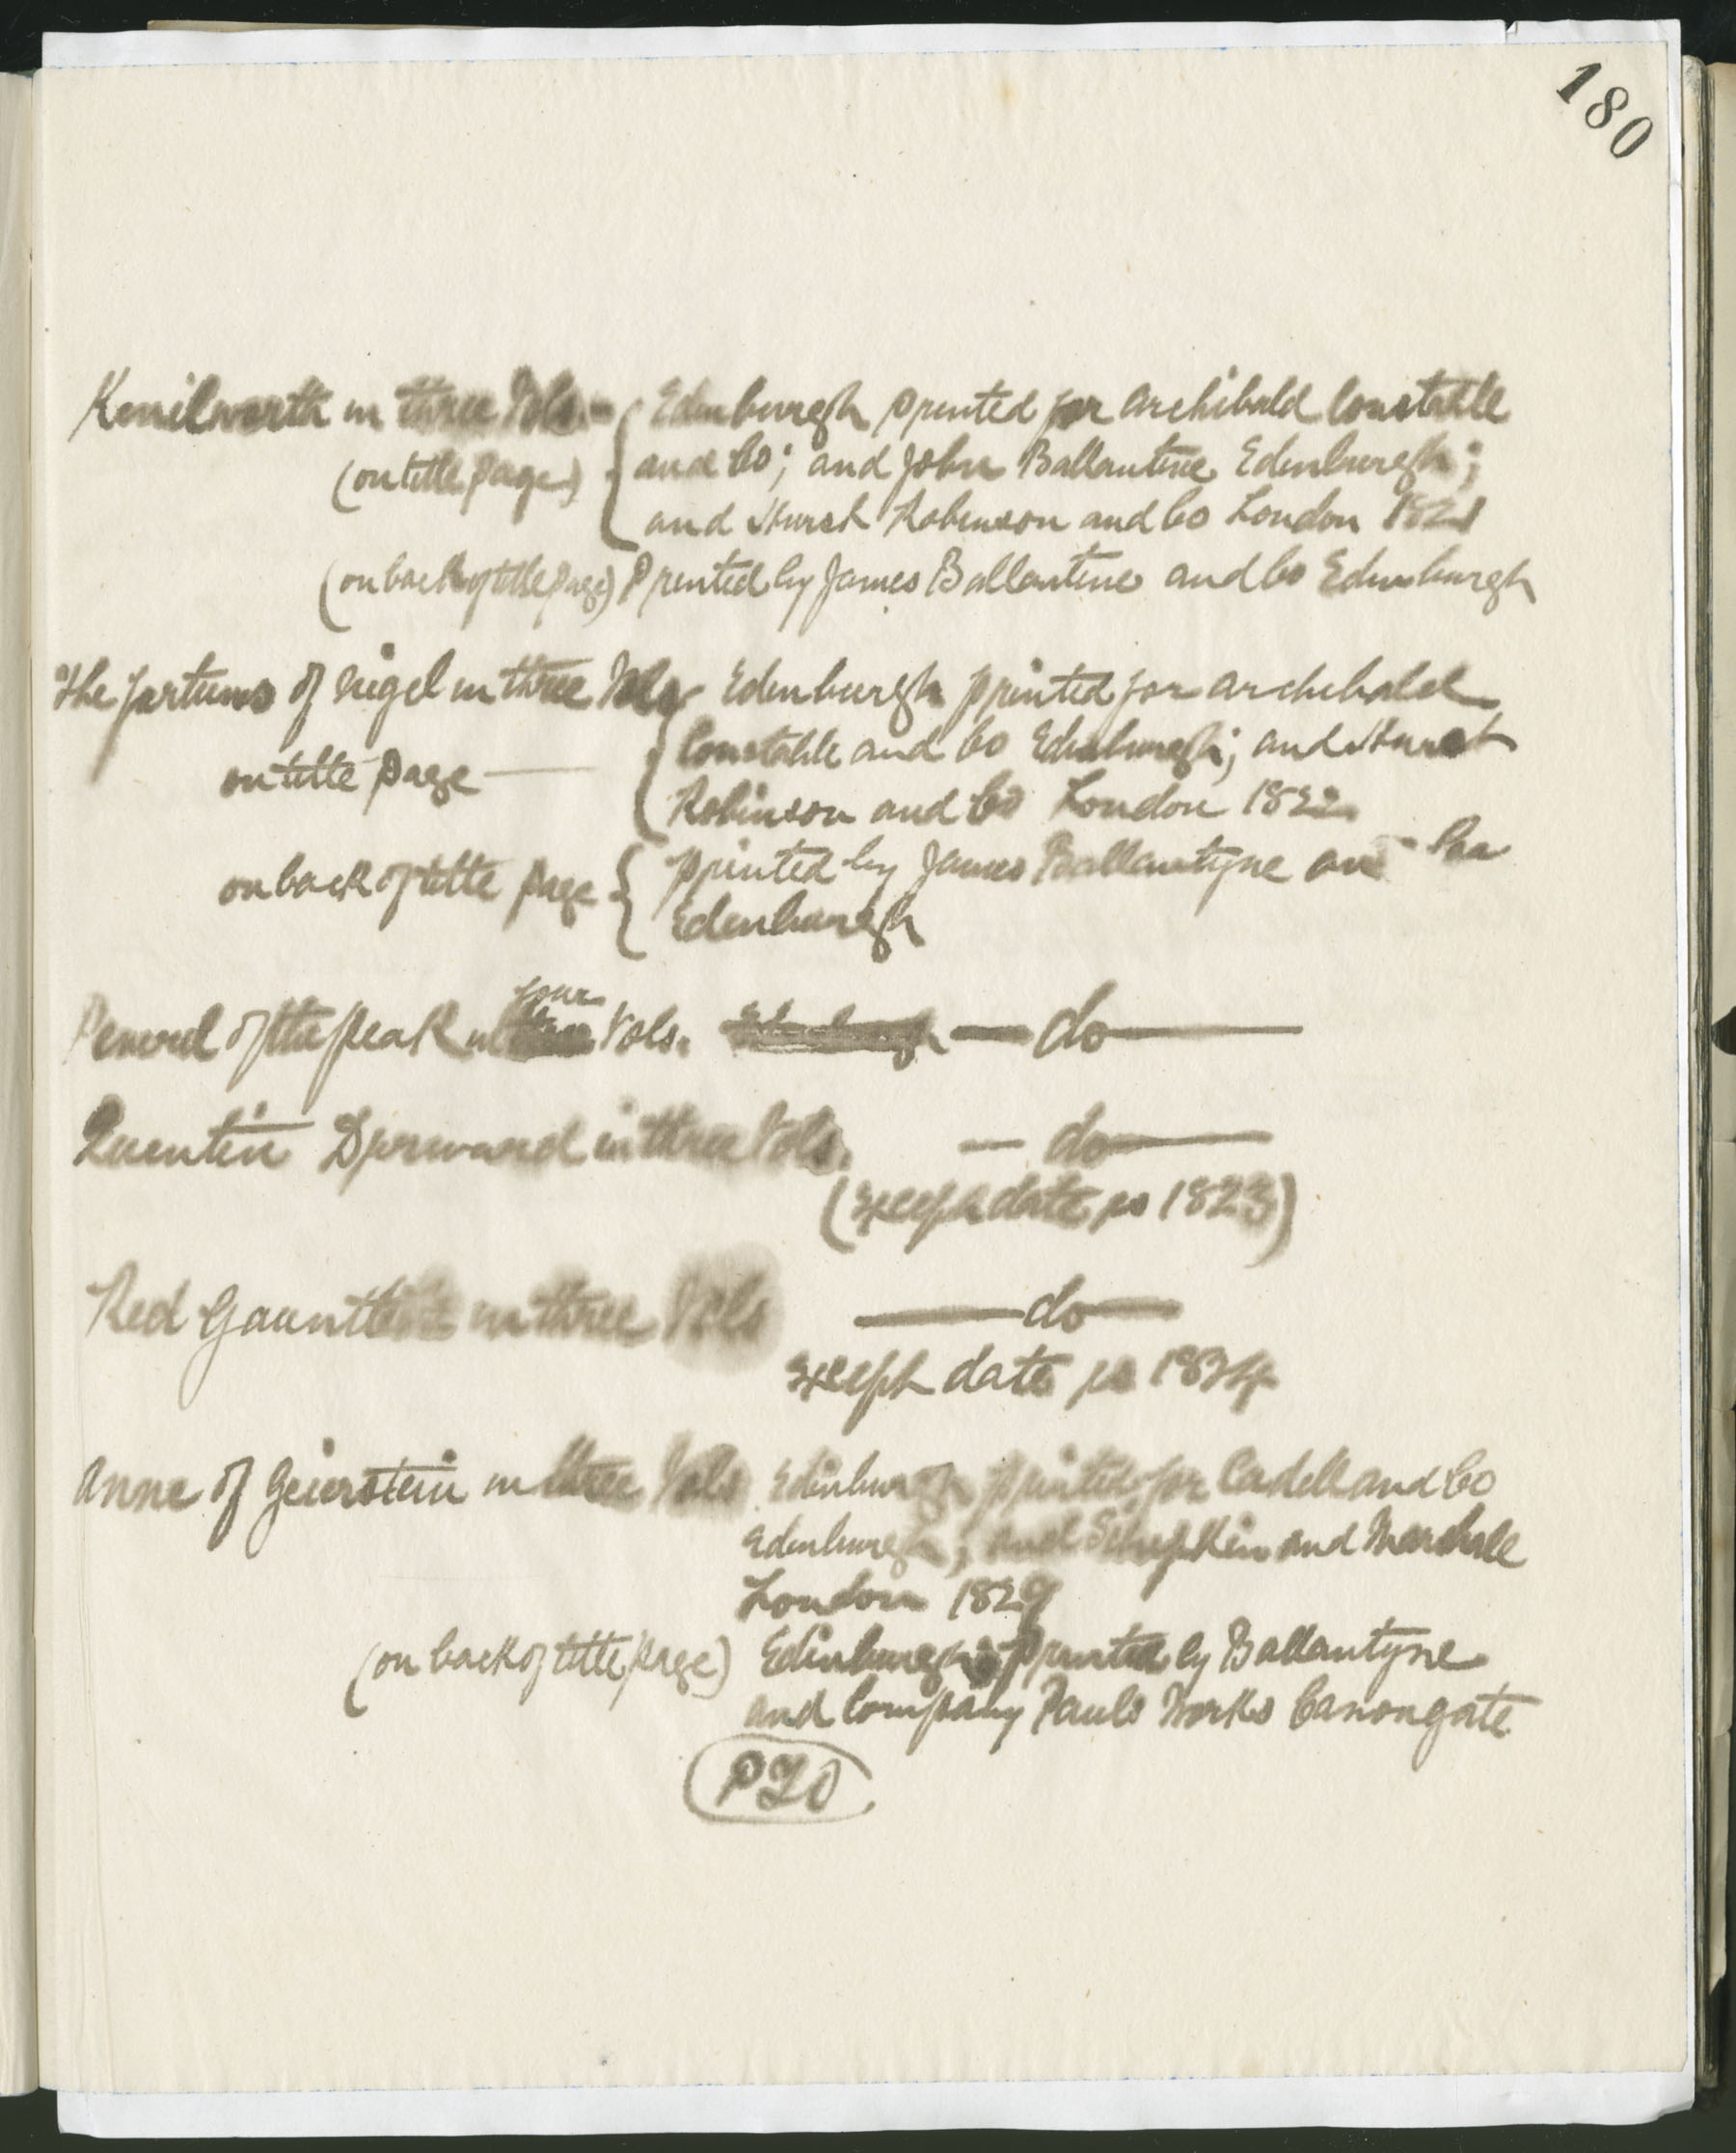 180
Kenilworth in three Vols. - Edinburgh printed for Archibald Constable
(on title page) and Co; and John Ballantine Edinburgh;
and Hurst Robinson and Co London 1821
(on back of title page) Printed by James Ballantine and Co Edinburgh
The fortunes of Nigel in three Vols Edinburgh printed for Archibald
Constable and Co Edinburgh; and Hurst
on title page — Robinson and Co London 1822
on back of title page printed by James Ballantyne and Co
Edinburgh
four
Peveril of the peak in three Vols. Edinburgh — do —
Quentin Durward in three Vols. — do —
(except date is 1823)
Red Gauntlett in three Vols — do —
except date is 1824
Anne of Geierstein in three Vols Edinburgh printed for Cadell and Co
Edinburgh; and Simpkin and Marshall
London 1829
(on back of title page) Edinburgh printed by Ballantyne
and Company Pauls Works Canongate
PTO